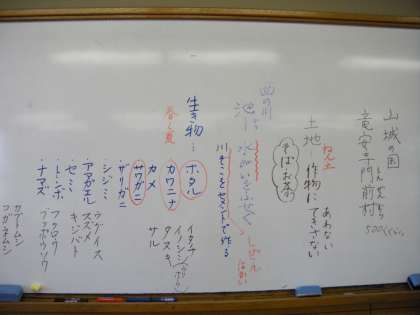 山城の国
竜安寺門前村
500くらい
ねん土
あわない
土地 作物にてきさない
そば お茶
西の川
池
川そこをセメントで作る
しぜん
はかい
生き物…
春と夏
・ホタル
・カワニナ
・カメ
・サワガニ
・ザリガニ
・シジミ
・アマガエル
・セミ
・トンボ
・ナマズ
イタチ
イノシシ
タヌキ
サル
ウグイス
スズメ
キジバト
フクロウ
ブッポウソウ
カブトムシ
コガネムシ